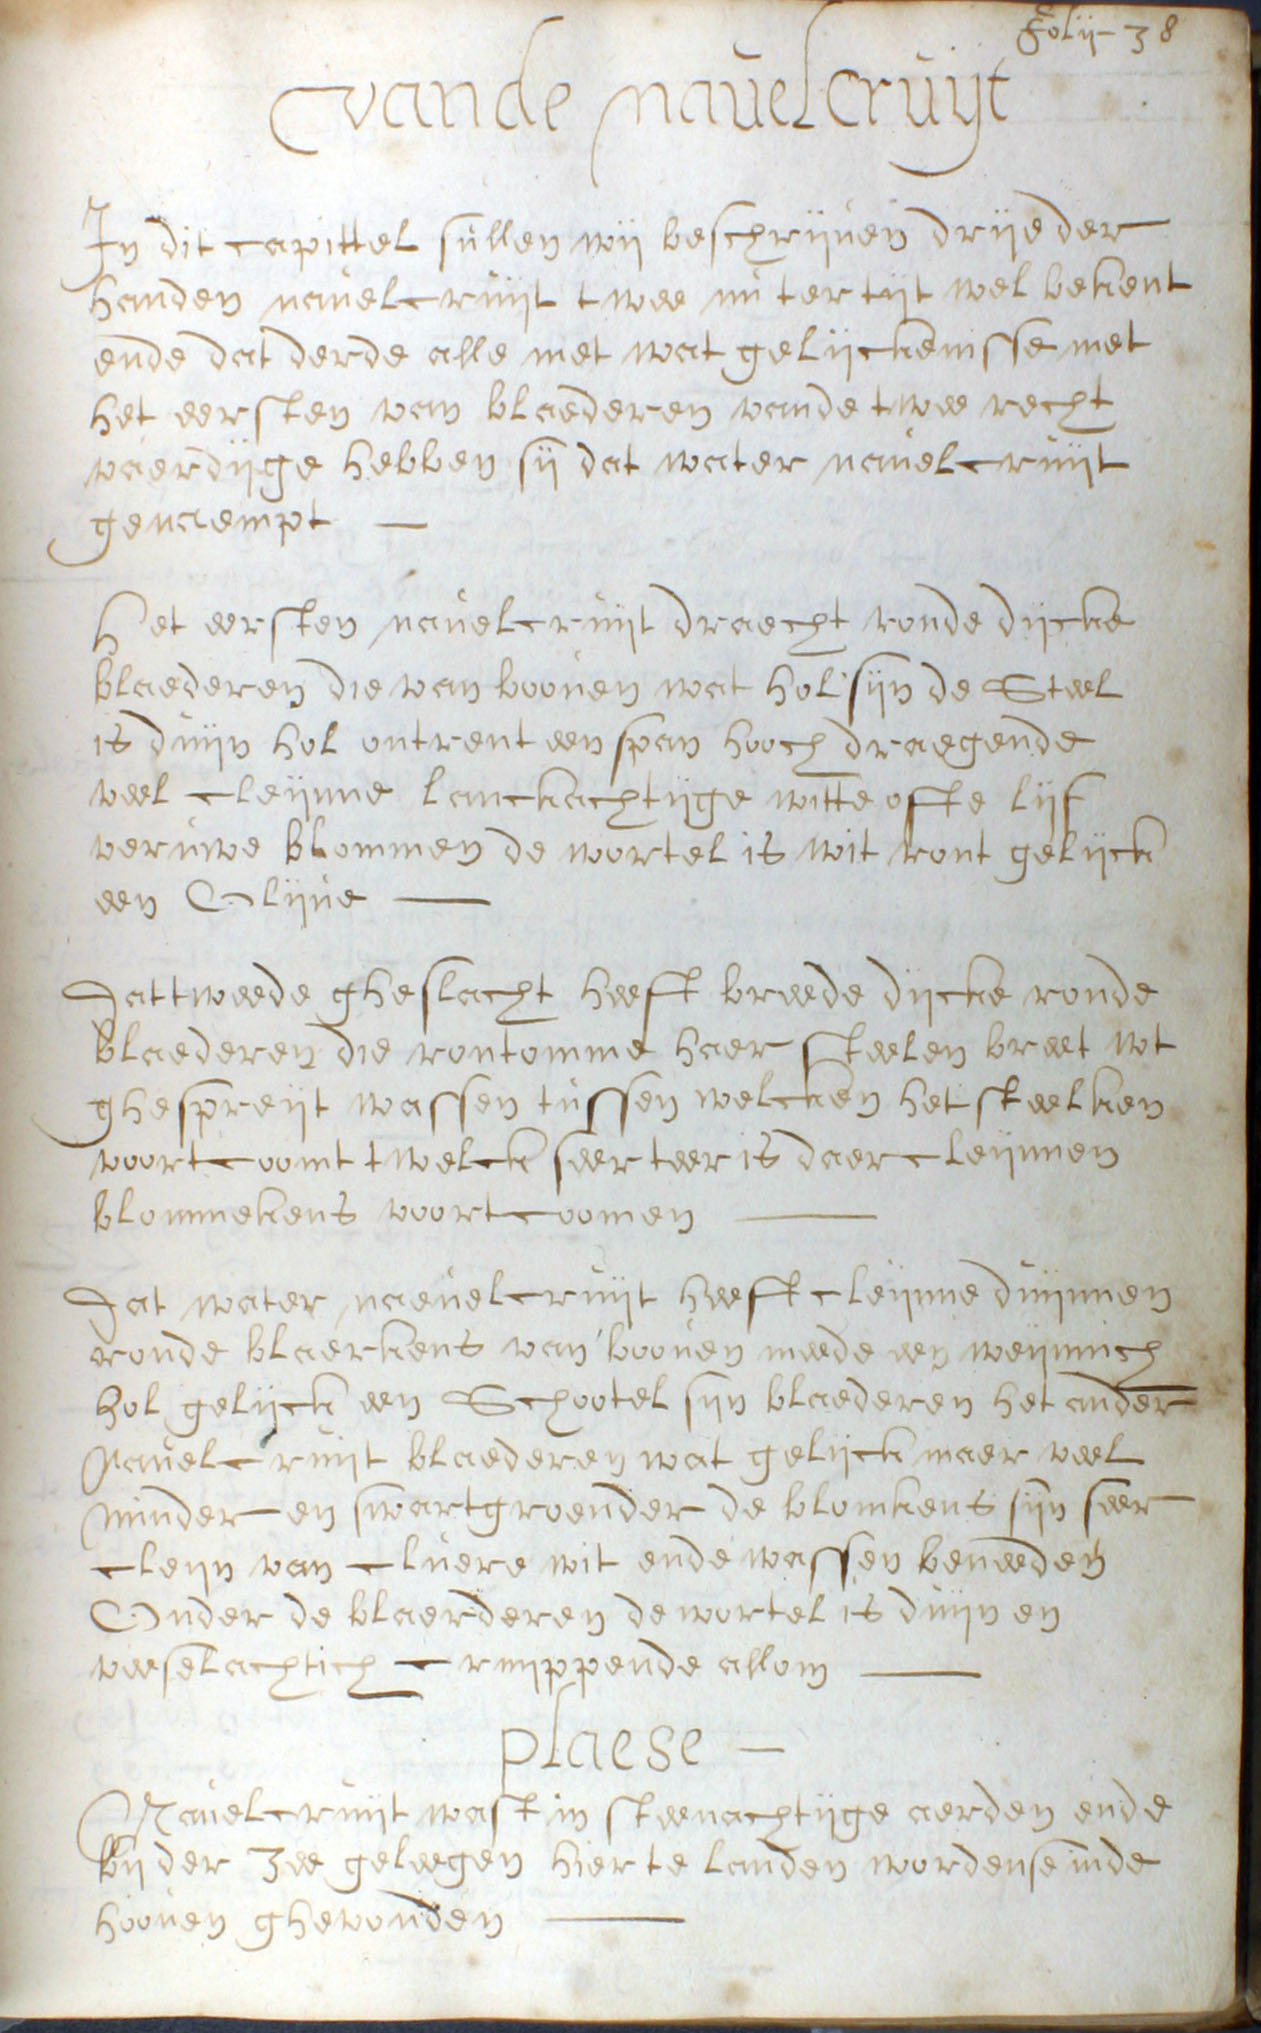 Folij 38
vande nauelcruijt
In dit capittel sullen wij beschrijuen drije der
handen nauelcruijt twee nu ter tijt wel bekent
ende dat derde alle met wat gelijckenisse met
het eersten van blaederen vande twee recht
vaerdijge hebben sij dat water nauelcruijt
genaempt —
Het eersten nauelcruijt draecht ronde dijcke
blaederen die van boouen wat hol sijn de Steel
is duijn hol ontrent een span hooch draegende
veel cleijnne lanckachtijge witte ofte lijf
veruwe blommen de wortel is wit ront gelijck
een Olijue —
Dat tweede gheslacht heeft breede dijcke ronde
blaederen die rontomme haer steelen breet wt
ghespreijt wassen tussen welcken het steelken
voortcoomt twelck seer teer is daer cleijnnen
blommekens voortcoomen —
Dat water naeuelcruijt heeft cleijnne duijnnen
ronde blaerkens van boouen meede een weijnnich
hol gelijck een Schootel sijn blaederen het ander
Nauelcruijt blaederen wat gelijck maer veel
minder en swartgroender de blomkens sijn seer
cleijn van cluere wit ende wassen beneeden
Onder de blaerderen de wortel is duijn en
veeselachtich cruijppende allom —
plaese —
Nauelcruijt wast in steenachtijge aerden ende
bij der Zee geleegen hier te landen wordense inde
hoouen gheuonden —